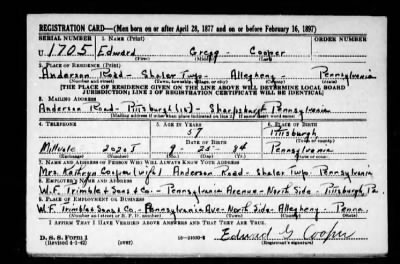 REGISTRATION CARD—(Men born on or after April 28, 1877 and on or before February 16, 1897)
SERIAL NUMBER 1. NAME (Print) ORDER NUMBER
U. 1705 Edward Gregg Cooper
(First) (Middle) (Last)
2. PLACE OF RESIDENCE (Print)
Anderson Road - Shaler Twp. - Allegheny - Pennsylvania
(Number and street) (Town, township, village, or city) (County) (State)
[THE PLACE OF RESIDENCE GIVEN ON THE LINE ABOVE WILL DETERMINE LOCAL BOARD
JURISDICTION; LINE 2 OF REGISTRATION CERTIFICATE WILL BE IDENTICAL]
3. MAILING ADDRESS
Anderson Road - Pittsburgh (15) - Sharpsburg Pennsylvania
[Mailing address if other than place indicated on line 2. If same insert word same]
4. TELEPHONE 5. AGE IN YEARS 6. PLACE OF BIRTH
57 Pittsburgh
DATE OF BIRTH (Town or county)
Millvale 2020J 9- 25- 84 Pennsylvania
(Exchange) (Number) (Mo.) (Day) (Yr.) (State or country)
7. NAME AND ADDRESS OF PERSON WHO WILL ALWAYS KNOW YOUR ADDRESS
Mrs. Kathryn Cooper (wife) Anderson Road - Shaler Twp. Pennsylvania
8. EMPLOYER'S NAME AND ADDRESS
W. F. Trimble & Sons & Co - Pennsylvania Avenue - North Side - Pittsburgh, Pa.
9. PLACE OF EMPLOYMENT OR BUSINESS
W. F. Trimble & Sons & Co - Pennsylvania Ave - North Side - Allegheny Penna
(Number and street or R. F. D. number) (Town) (County) (State)
I AFFIRM THAT I HAVE VERIFIED ABOVE ANSWERS AND THAT THEY ARE TRUE.
D. S. S. FORM 1 Edward G Cooper
(Revised 4-1-42) (over) (Registrant's signature)